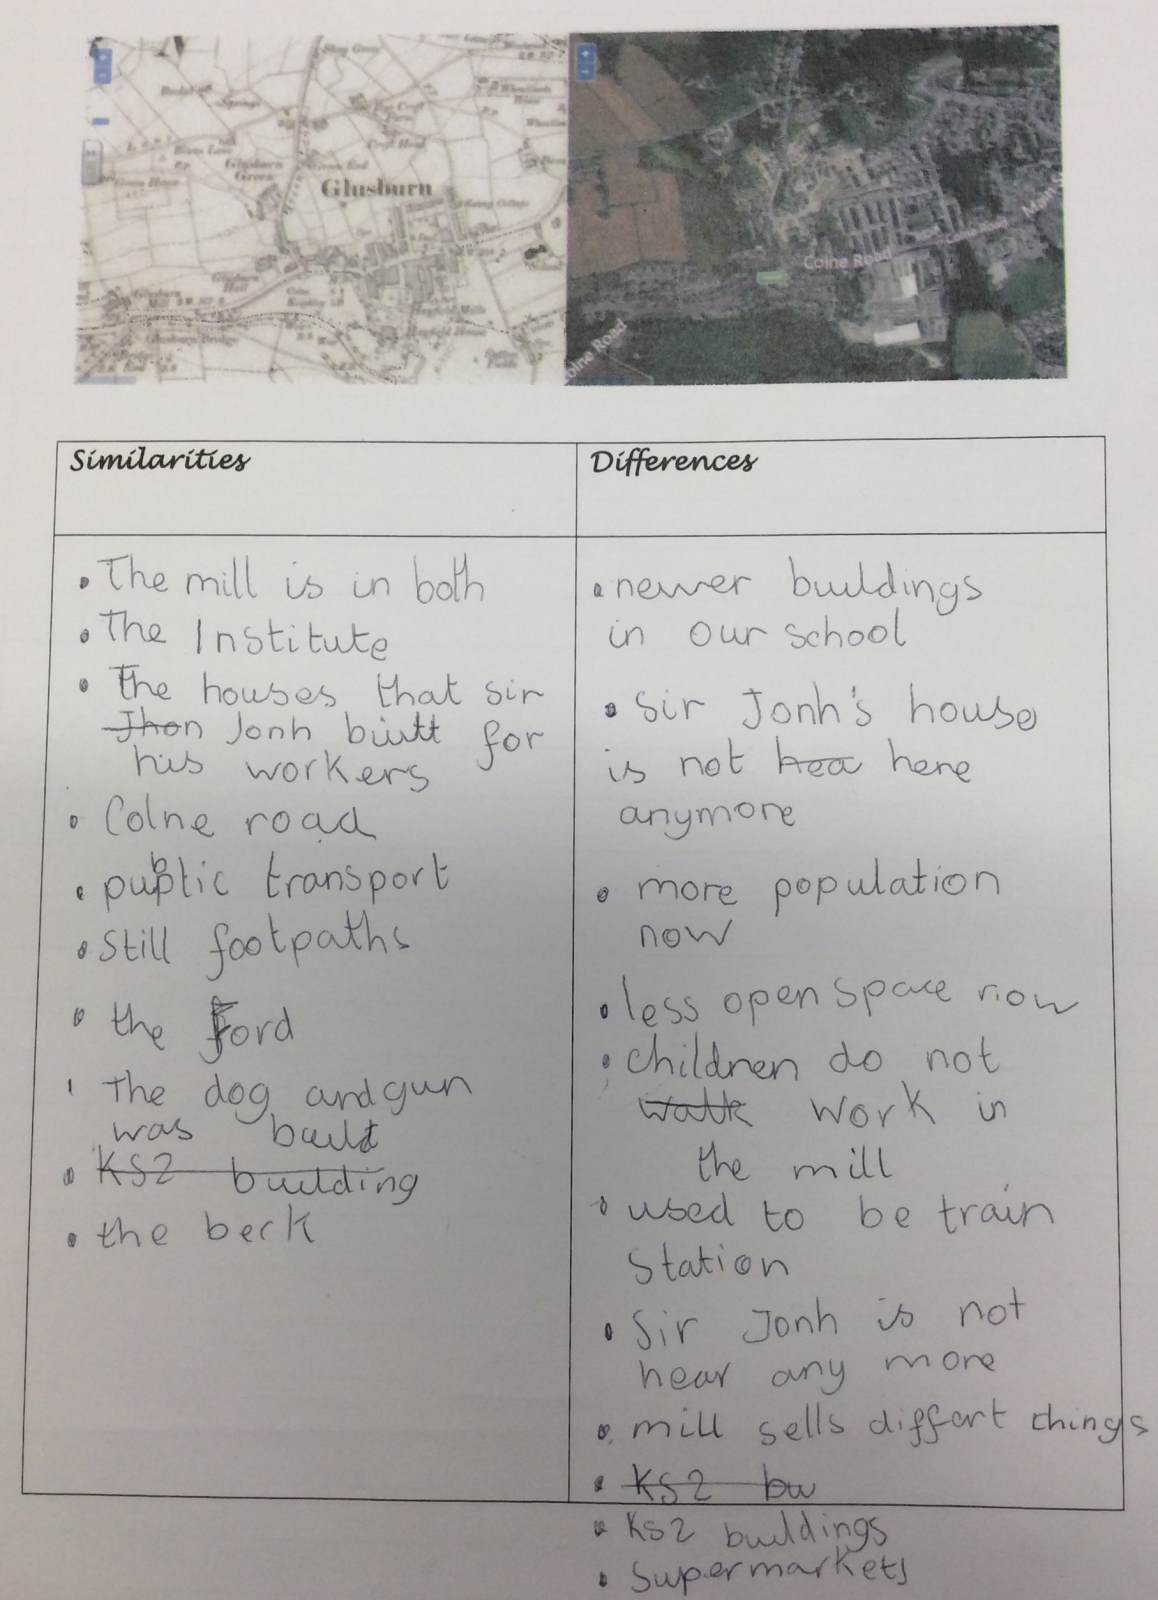 Glusburn
Glusburn
Green
Colne Road
Colne Road
Similarities
Differences
• The mill is in both
• The Institute
• The houses that sir
Jhon Jonh built for
his workers
• Colne road
• public transport
• Still footpaths
• the Ford
The dog and gun
was built
• KS2 building
• the beck
• newer buildings
in our school
• Sir Jonh's house
is not hea here
anymore
• more population
now
• less open space now
• children do not
walk work in
the mill
• used to be train
station
• Sir Jonh is not
hear any more
• mill sells diffart things
• KS2 bu
• KS2 buildings
• Supermarkets